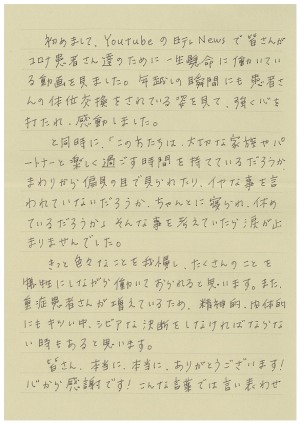 初めまして、Youtubeの日テレNewsで皆さんが
コロナ患者さん達のために一生懸命に働いてい
る動画を見ました。年越しの瞬間にも患者さ
んの体位交換をされている姿を見て、強く心を
打たれ、感動しました。
と同時に、「この方たちは、大切な家族やパ
ートナーと楽しく過ごす時間を持てているだろうか、
まわりから偏見の目で見られたり、イヤな事を言
われていないだろうか、ちゃんとに寝られ、休め
ているだろうか」そんな事を考えていたら涙が止
まりませんでした。
きっと色々なことを我慢し、たくさんのことを
犠牲にしながら働いておられると思います。また、
重症患者さんが増えているため、精神的、肉体的
にもキツい中、シビアな決断をしなければならな
い時もあると思います。
皆さん、本当に、本当に、ありがとうございます!
心から感謝です!こんな言葉では言い表わせ